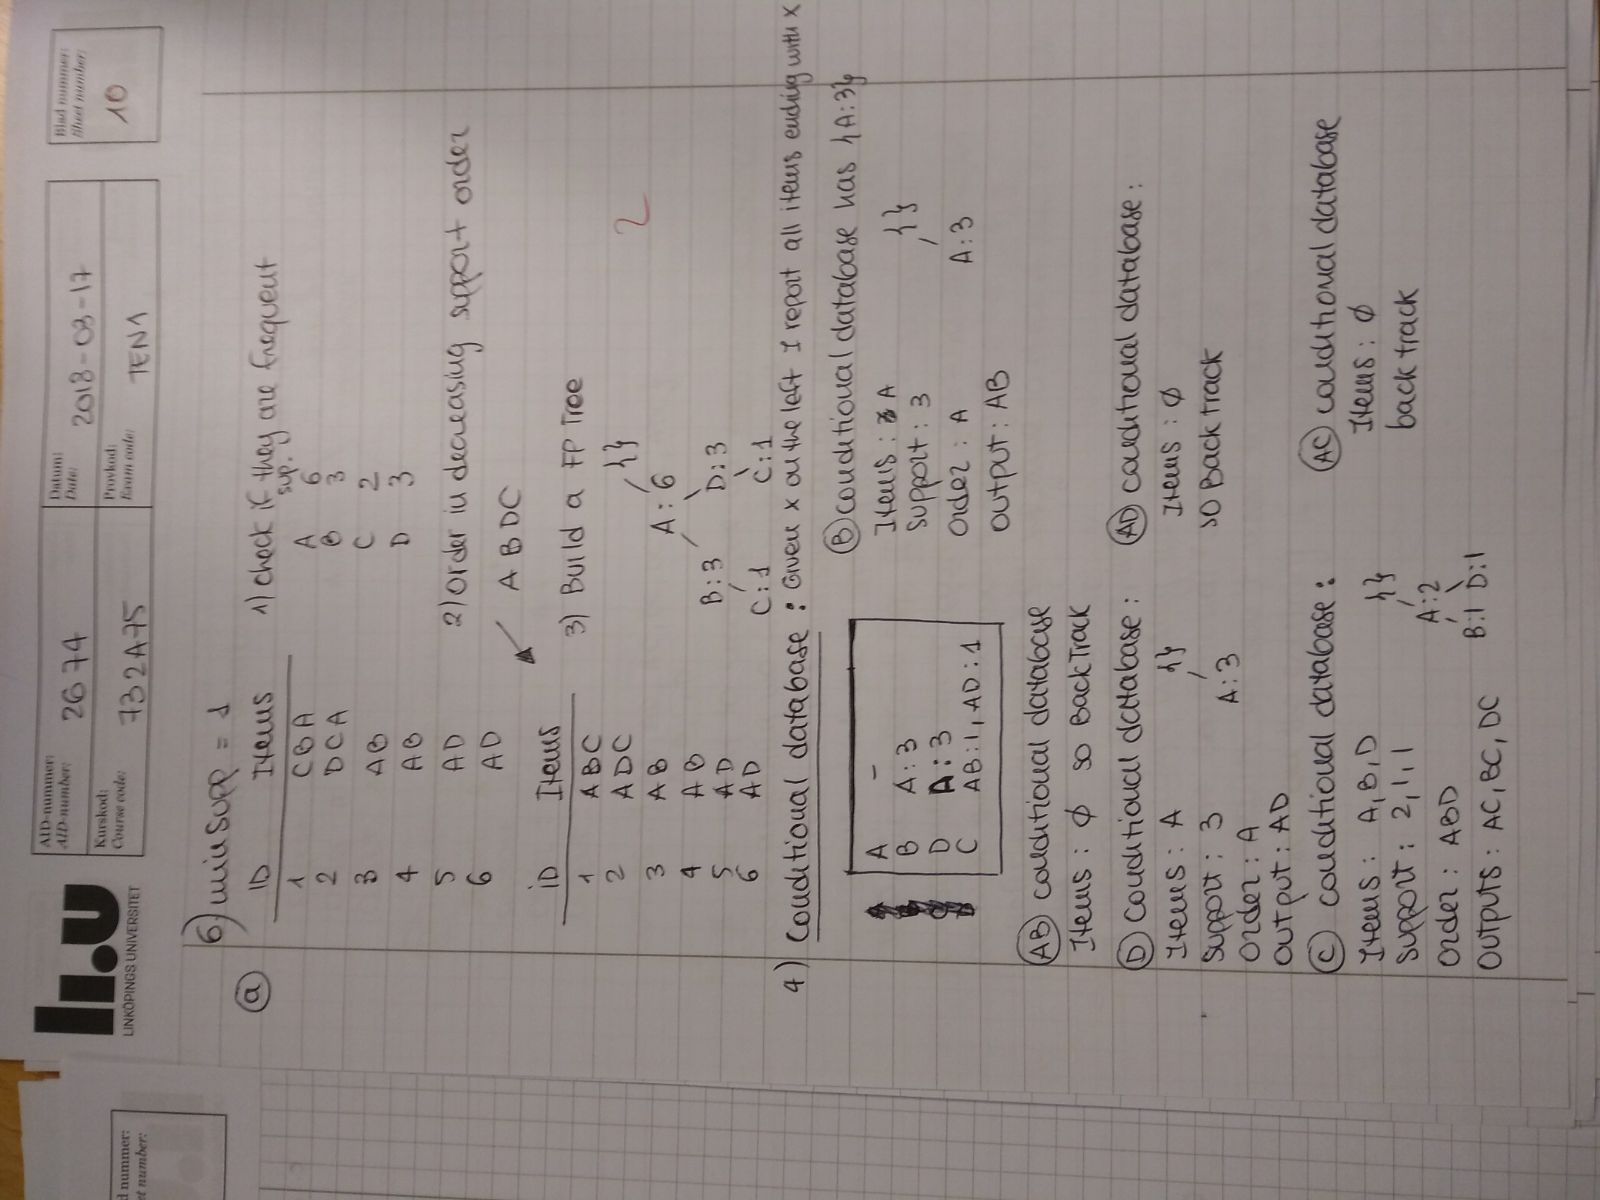 d nummer:
et number:
li.u
LINKÖPINGS UNIVERSITET
AID-nummer:
AID-number: 2674
Datum:
Date: 2018-03-17
Blad nummer:
Sheet number:
10
Kurskod:
Course code: 732A75
Provkod:
Exam code: TEN1
6) minsupp = 1
a
ID Items
1 CBA
2 DCA
3 AB
4 AB
5 AD
6 AD
1) check if they are frequent
sup.
A 6
B 3
C 2
D 3
2) Order in decreasing support order
A B D C
iD Items
1 ABC
2 ADC
3 AB
4 AB
5 AD
6 AD
3) Build a FP Tree
{}
A: 6
B: 3 D: 3
C: 1 C: 1
2
4) conditional database : Given x on the left I report all items ending with x
A -
B A: 3
D A: 3
C AB:1, AD:1
B conditional database has {A:3}
Items : A
support : 3
order : A
output: AB
{}
A: 3
AB conditional database
Items : ∅ so BackTrack
D conditional database :
Items : A
support : 3
order : A
output : AD
{}
A: 3
AD conditional database :
Items : ∅
so Back track
C conditional database :
Items : A, B, D
support : 2, 1, 1
order : ABD
outputs : AC, BC, DC
{}
A:2
B:1 D:1
AC conditional database
Items : ∅
back track